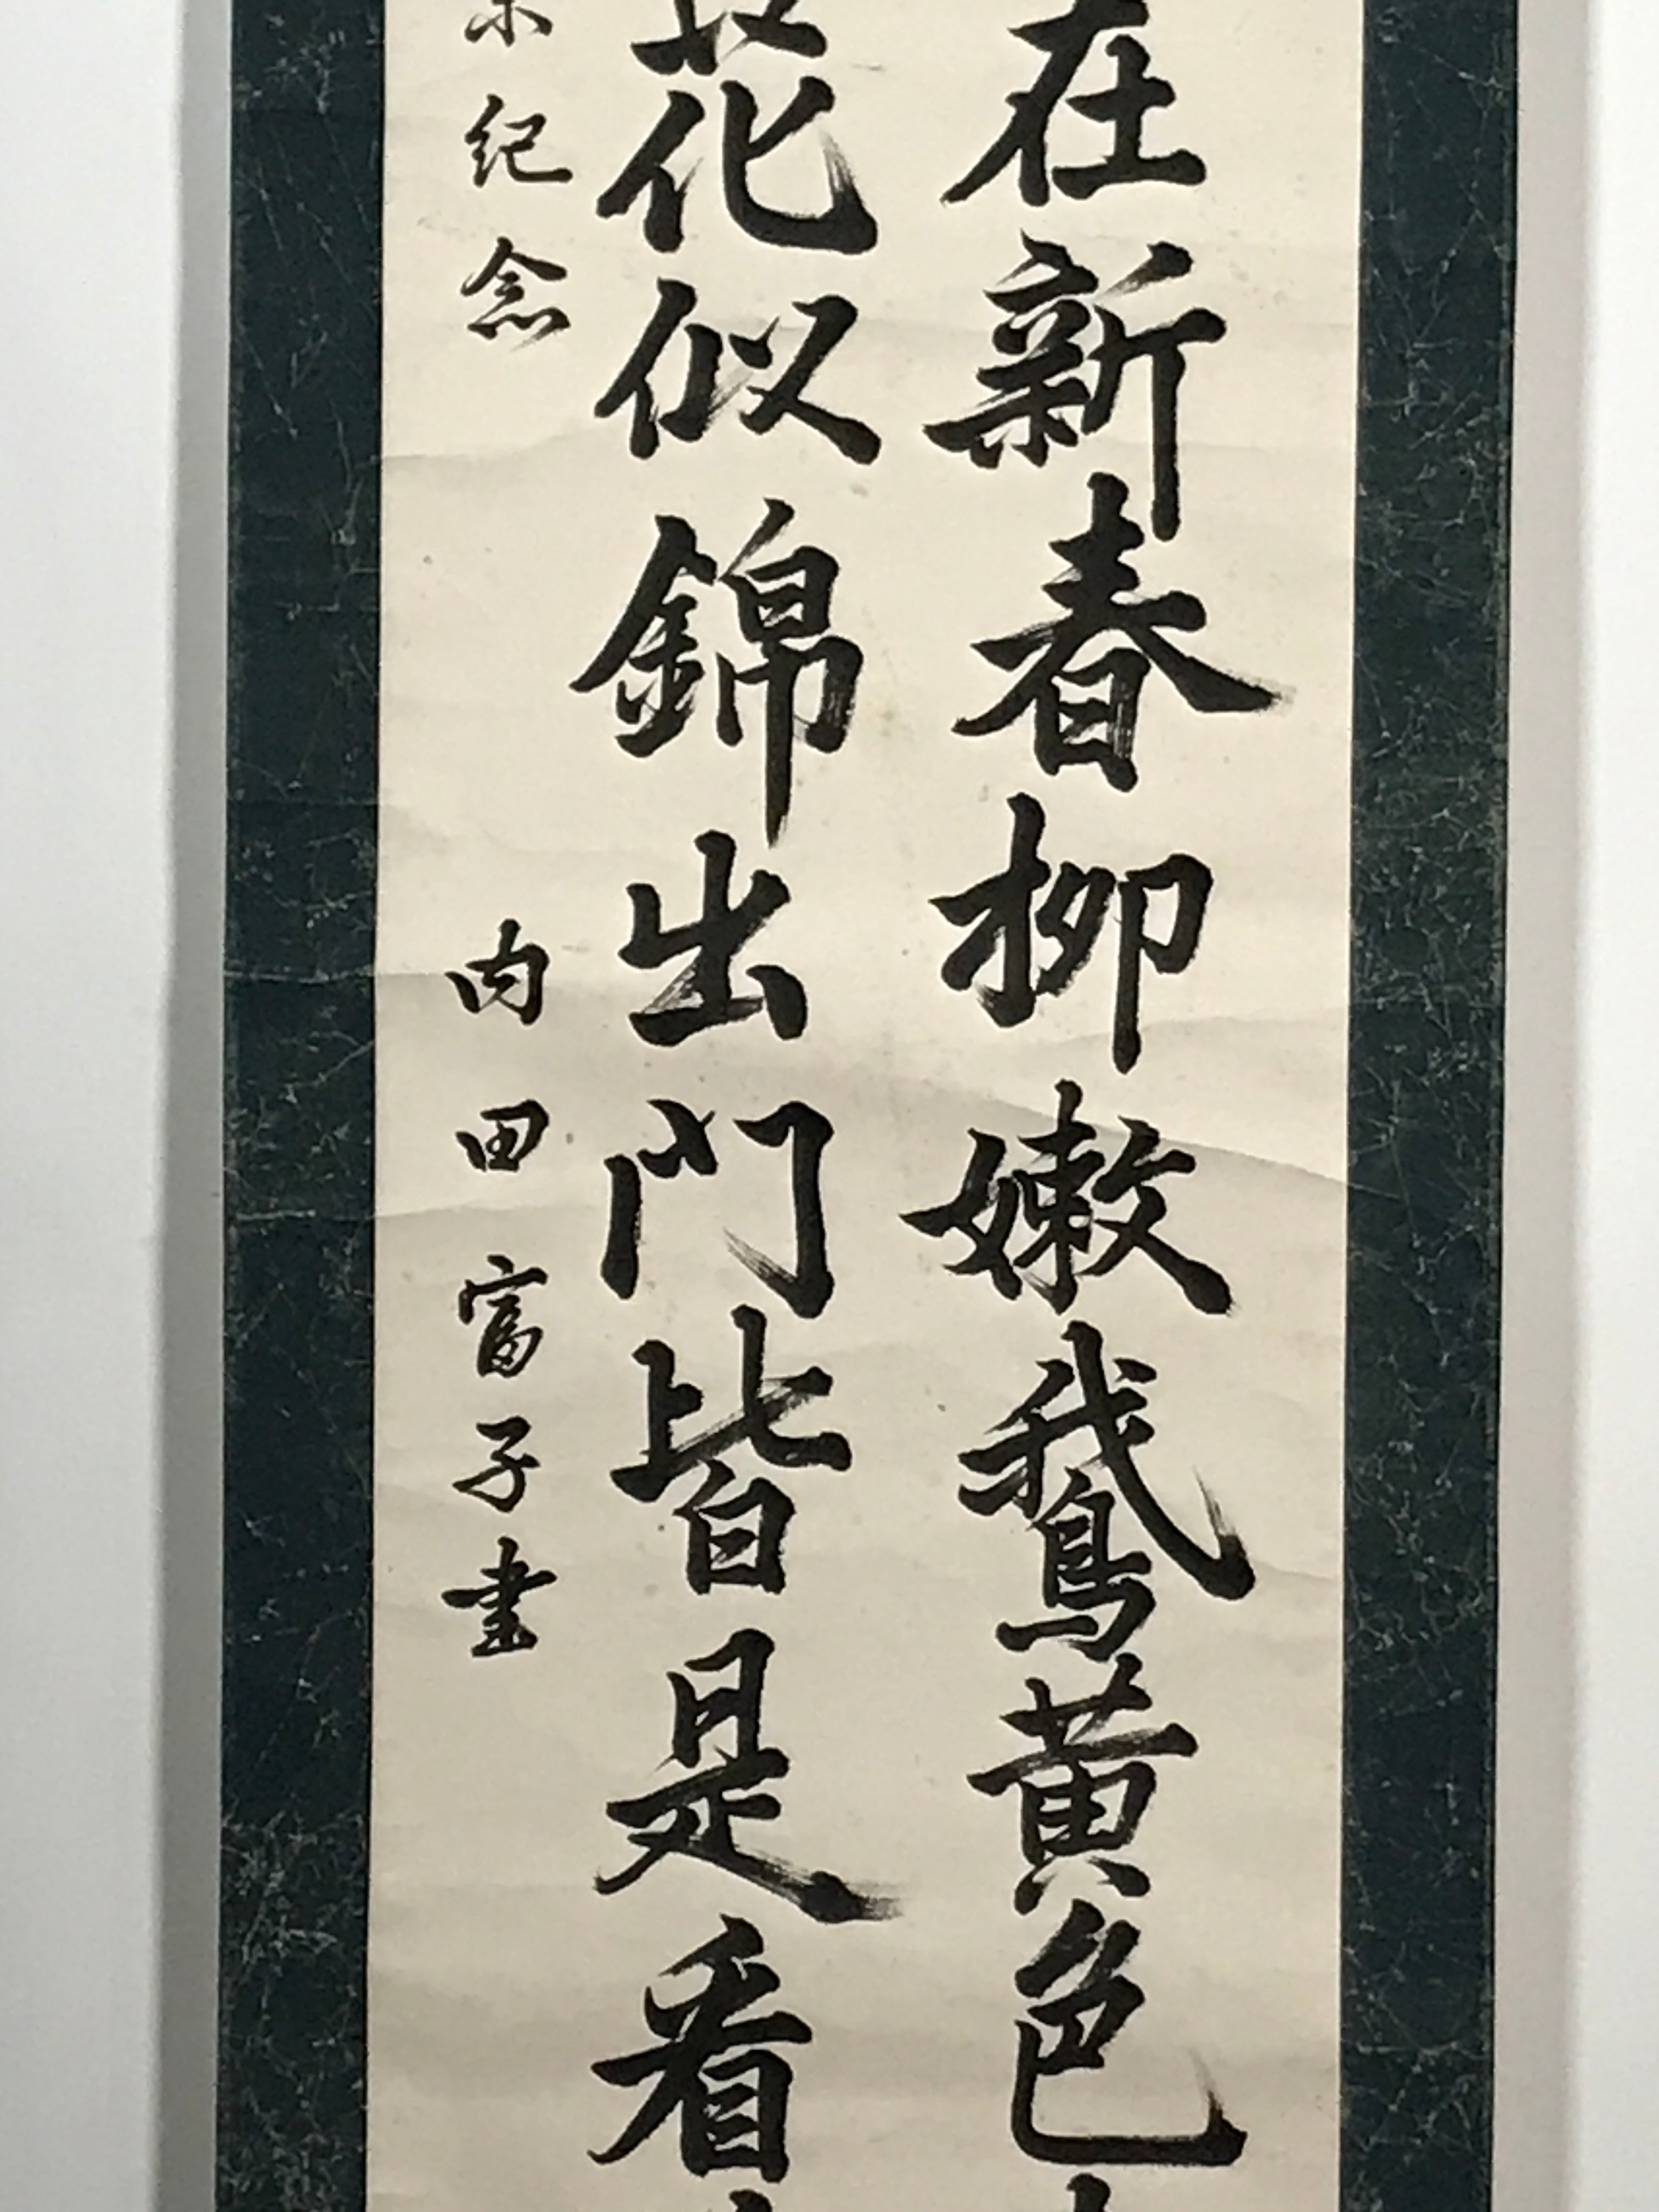 在新春柳嫩鵝黃色
花似錦出門皆是看
紀念 内田富子書